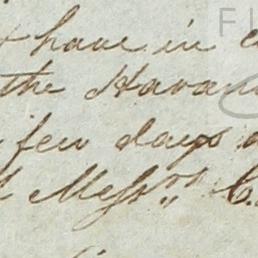 have in
the Havan
few days
Messrs C.